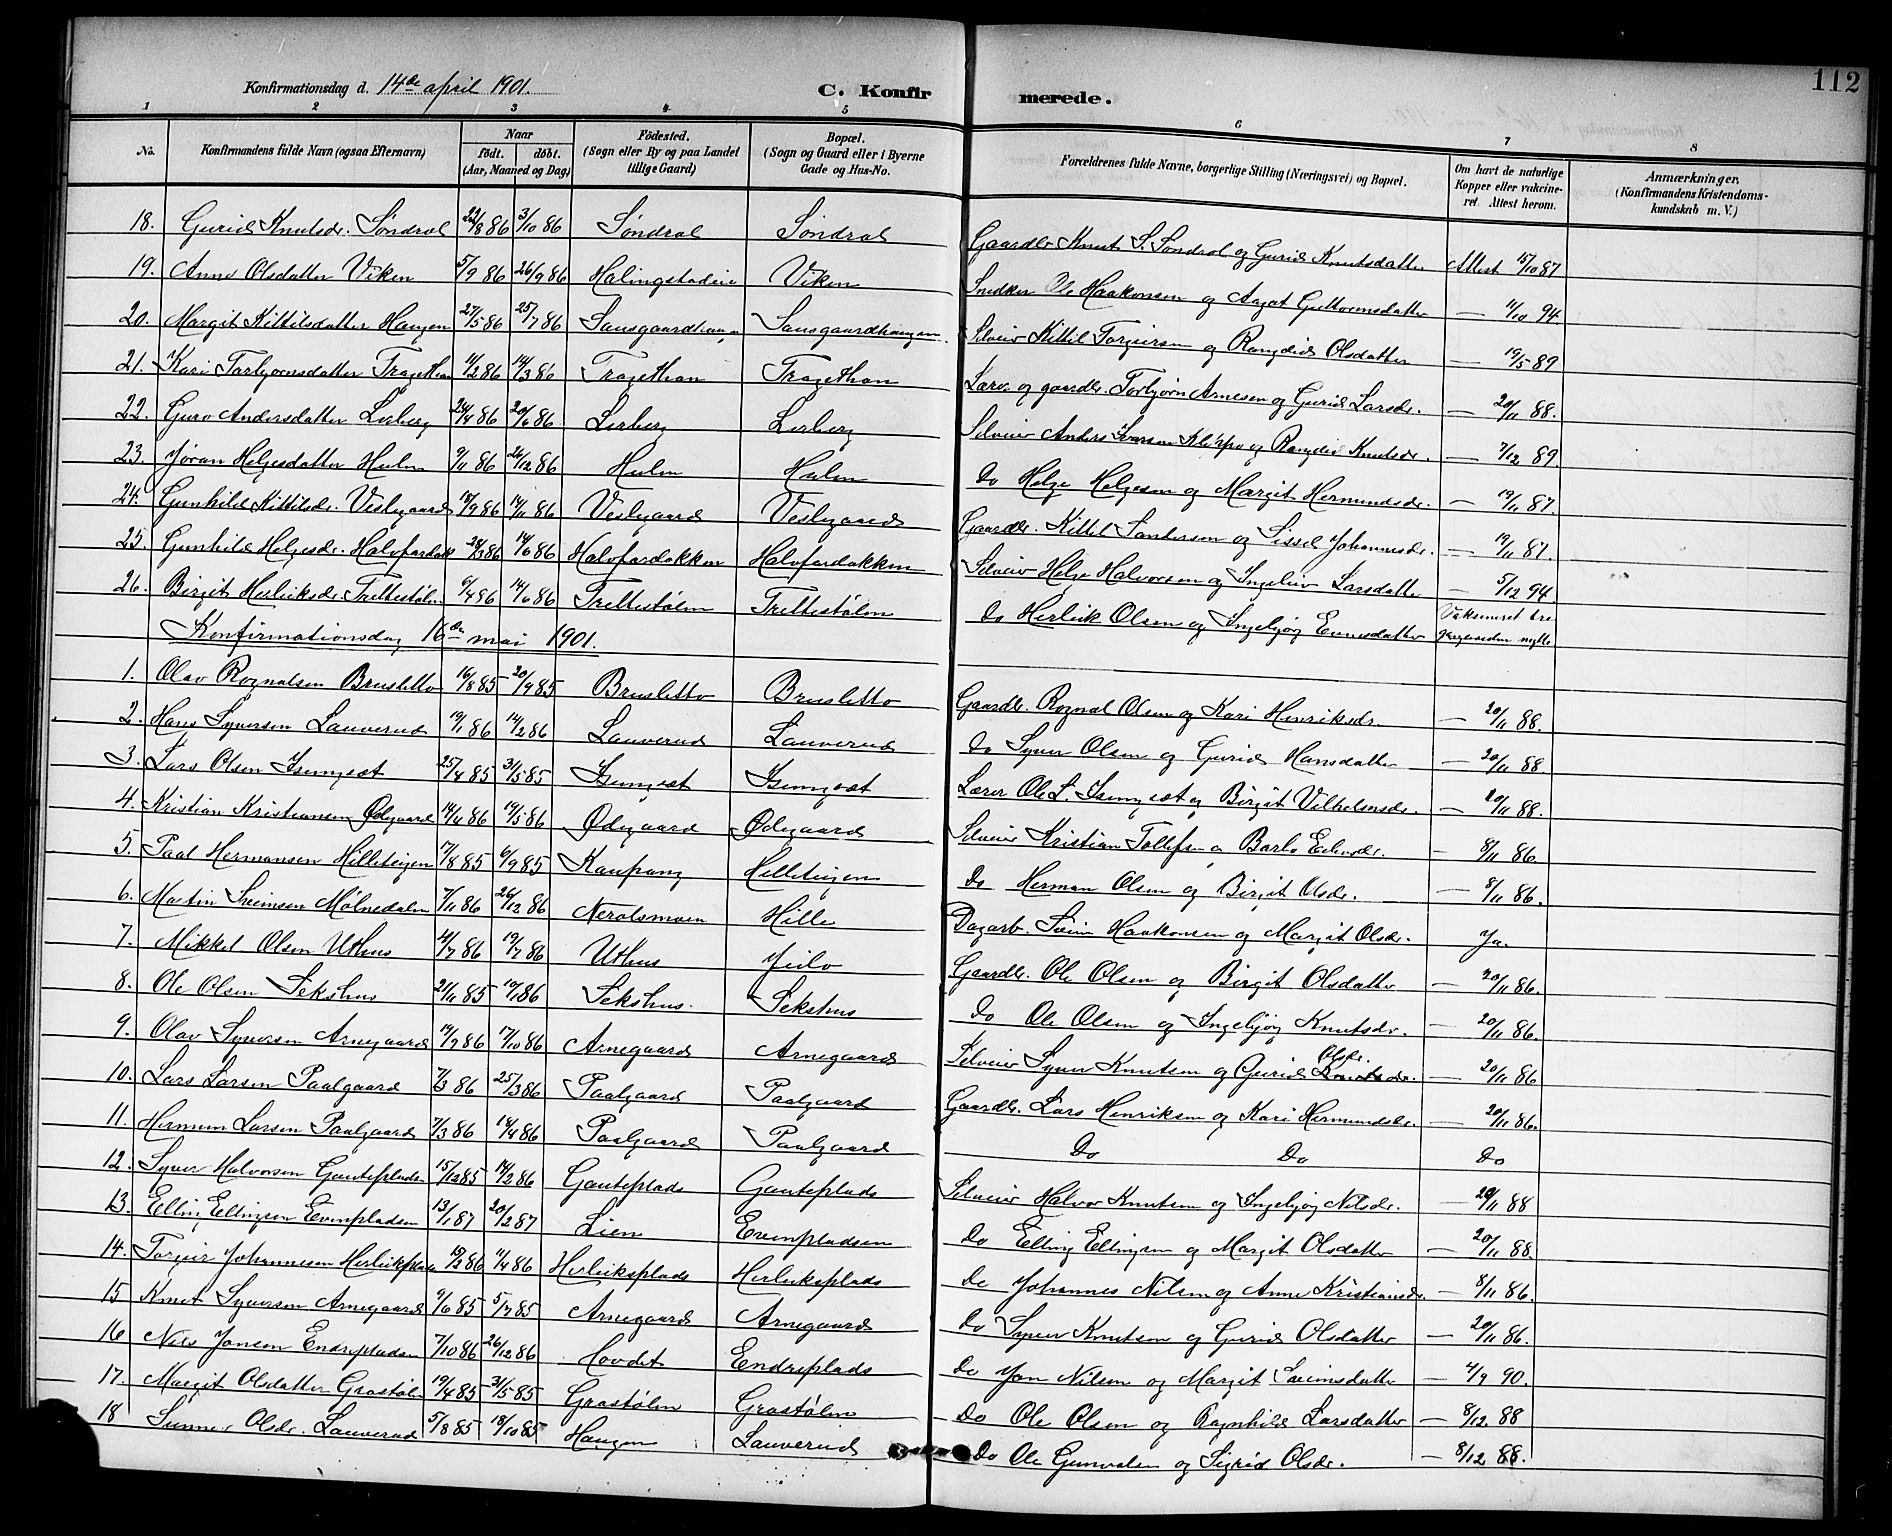 Konfirmationsdag d. 14de april 1901. C. Konfirmerede. 112
1 2 3 4 5 6 7 8
No. Konfirmandens fulde Navn (ogsaa Efternavn) Naar født. døbt. (Aar, Maaned og Dag) Fødested. (Sogn eller By og paa Landet tillige Gaard) Bopæl. (Sogn og Gaard eller i Byerne Gade og Hus-No. Forældrenes fulde Navne, borgerlige Stilling (Næringsvei) og Bopæl. Om havt de naturlige Kopper eller vakcineret. Attest herom. Anmærkninger. (Konfirmandens Kristendomskundskab m. V.)
18. Gurid Knutsdr. Søndrol 22/8 86 3/10 86 Søndrol Søndrol Gaardbr Knut S. Søndrol og Gurid Knutsdatter Attest 15/10 87
19. Anne Olsdatter Viken 5/9 86 26/9 86 Halingstadeie Viken Snedker Ole Haakonsen og Aagot Guttormsdatter — 11/10 94.
20. Margit Kittilsdatter Haugen 27/5 86 25/7 86 Sansgaardhaugen Sansgaardhaugen Selveier Kittil Torgeirsen og Rangdid Olsdatter — 19/5 89
21. Kari Torbjørnsdatter Tragethan 11/2 86 14/3 86 Tragethan Tragethan Lærer og gaardbr. Torbjørn Arnesen og Gurid Larsdr. — 20/11 88.
22. Guro Andersdatter Lerberg 24/4 86 20/6 86 Lerberg Lerberg Selveier Anders Iversen og Rangdid Knutsdr. — 7/12 89.
23. Jøran Helgesdatter Hulm 9/11 86 26/12 86 Hulm Hulm Do Helge Helgesen og Margit Hermundsdr. — 19/11 87.
24. Gunhild Kittilsdr. Veslegaard 18/9 86 14/11 86 Veslegaard Veslegaard Gaardbr. Kittil Sandersen og Sissel Johannesdr. — 19/11 87.
25. Gunhild Helgesdr. Halvfardokk 28/3 86 14/6 86 Halvfardokken Halvfardokken Selveier Helge Halvorsen og Ingeleiv Larsdatter — 5/12 94
26. Birgit Herleiksdr. Trettestølen 9/4 96 14/6 86 Trettestølen Trettestølen Do Herleik Olsen og Ingebjøg Evensdatter Vaksineret tre gange uden nytte
Konfirmationsdag 16de mai 1901.
1. Olav Rognalsen Brusletto 16/8 85 20/9 85 Brusletto Brusletto Gaardbr. Rognal Olsen og Kari Henriksdr. — 20/11 88.
2. Hans Syversen Lauverud 19/1 86 14/2 86 Lauverud Lauverud Do Syver Olsen og Gurid Hansdatter — 20/11 88.
3. Lars Olsen Isungset 25/4 85 31/5 85 Isungset Isungset Lærer Ole L. Isungset og Birgit Vilhelmsdr. — 20/11 88.
4. Kristian Kristiansen Ødegaard 14/4 86 14/5 86 Ødegaard Ødegaard Selveier Kristian Tollefsen og Barbo — 8/11 86.
5. Paal Hermansen Hilleteigen 17/8 85 6/9 85 Kaupang Hilleteigen Do Herman Olsen og Birgit Olsdr. — 8/11 86.
6. Martin Sveinsen Mølnedalen 7/11 86 26/12 86 Nerolsmoen Hille Dagarb. Svein Haakonsen og Margit Olsdr. Ja.
7. Mikkel Olsen Uthus 4/7 86 19/7 86 Uthus Jeilo Gaardbr. Ole Olsen og Birgit Olsdatter — 20/11 86.
8. Ole Olsen Sekshus 21/11 85 17/1 86 Sekshus. Sekshus Do Ole Olsen og Ingebjøg Knutsdr. — 20/11 86.
9. Olav Syversen Arnegaard 14/9 86 17/10 86 Arnegaard Arnegaard Selveier Syver Knutsen og Gurid Olsdr. — 20/11 86
10. Lars Larsen Paalgaard 7/3 86 25/3 86 Paalgaard Paalgaard Gaardbr. Lars Henriksen og Kari Hermundsdr. — 20/11 86.
11. Hermun Larsen Paalgaard 7/3 86 14/4 86 Paalgaard Paalgaard Do Do Do
12. Syver Halvorsen Gauteplads 15/12 85 14/2 86 Gauteplads Gauteplads Selveier Halvor Knutsen og Ingebjøg Nilsdr. — 20/11 88
13. Elling Ellingsen Evenpladsen 13/1 87 20/2 87 Lien Evenpladsen Do Elling Ellingsen og Margit Olsdatter — 20/11 88.
14. Torgeir Johannesen Herleikplads 19/2 86 11/4 86 Herleiksplads Herleiksplads Do Johannes Nilsen og Anne Kristiansdr. — 8/11 86.
15 Knut Syversen Arnegaard 9/6 85 5/7 85 Arnegaard Arnegaard Do Syver Knutsen og Gurid Olsdatter — 20/11 86.
16 Nils Jonsen Endrepladsen 7/10 86 26/12 86 Hovdet Endreplads Do Jon Nilsen og Margit Sveinsdatter — 4/9 90.
17. Margit Olsdatter Grostølen 19/4 85 31/5 85 Grostølen Grostølen Do Ole Olsen og Ragnhild Larsdatter — 8/12 88
18 Sunnev Olsdr. Lauverud 5/8 85 18/10 85 Haugen Lauverud Do Ole Gunvalsen og Sigrid Olsdr. — 8/12 88.